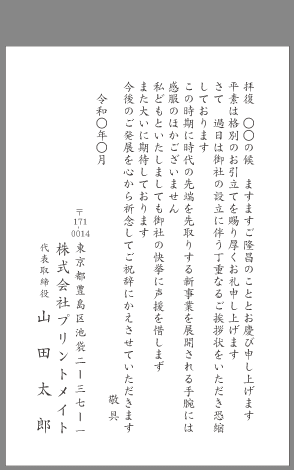 拝復　〇〇の候　ますますご隆昌のこととお慶び申し上げます
平素は格別のお引立てを賜り厚くお礼申し上げます
さて　過日は御社の設立に伴う丁重なるご挨拶状をいただき恐縮
しております
この時期に時代の先端を先取りする新事業を展開される手腕には
感服のほかございません
私どもといたしましても御社の快挙に声援を惜しまず
また大いに期待しております
今後のご発展を心から祈念してご祝辞にかえさせていただきます
敬具
令和〇年〇月
〒171-0014
東京都豊島区池袋二ー三七ー一
株式会社プリントメイト
代表取締役　山田太郎